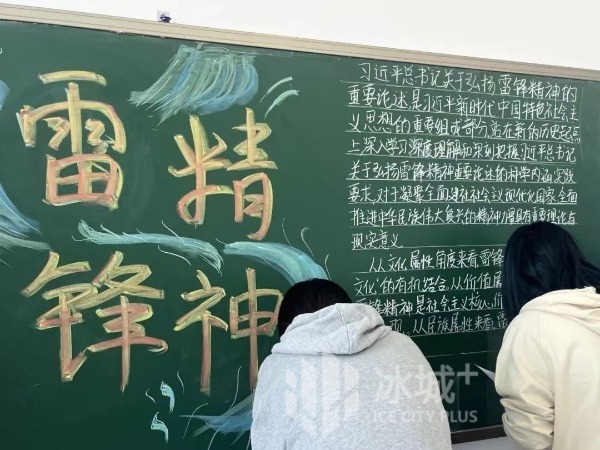 雷精
锋神
习近平总书记关于弘扬雷锋精神的
重要论述是习近平新时代中国特色社会主
义思想的重要组成部分站在新的历史起点
上深入学习深度理解和深刻把握习近平总书记
关于弘扬雷锋精神重要论述的科学内涵实践
要求,对于凝聚全面建设社会主义现代化国家,全面
推进中华民族伟大复兴的精神力量具有重要理论与
现实意义
从文化属性角度来看雷锋
文化"的有机结合,从价值属
雷锋精神是社会主义核心价
从民族属性来看,雷
冰城+
ICE CITY PLUS